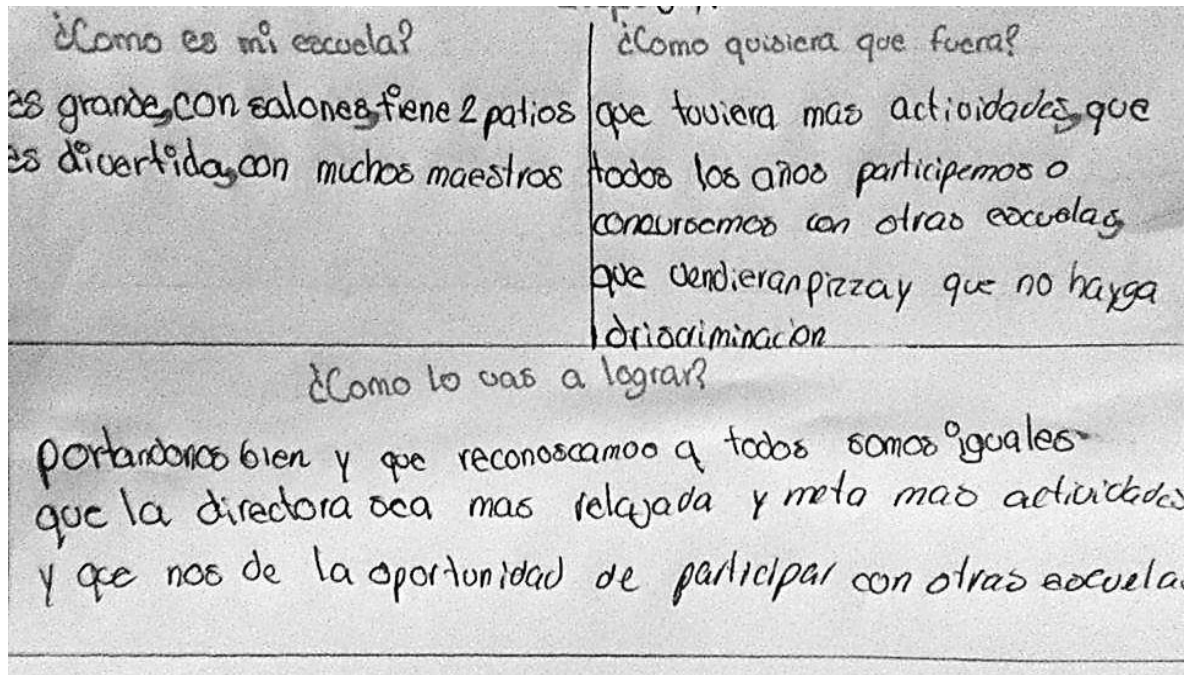 ¿Como es mi escuela?
es grande, con salones, tiene 2 patios
es divertida, con muchos maestros
¿Como quisiera que fuera?
que touviera mas actividades, que
todos los años participemos o
concursemos con otras escuelas,
que vendieran pizza y que no hayga
driscriminacion
¿Como lo vas a lograr?
portandonos bien y que reconoscamos q todos somos iguales
que la directora sea mas relajada y meta mas actividades
y que nos de la oportunidad de participar con otras escuelas